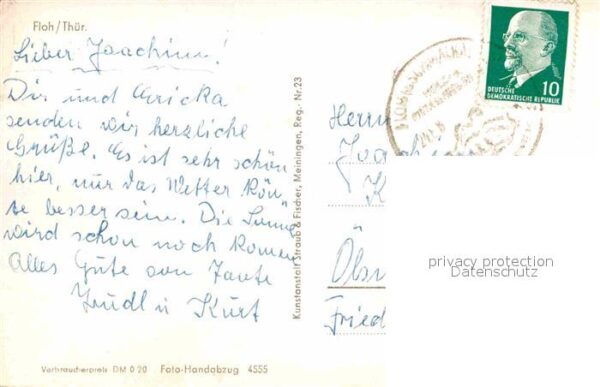 Floh/Thür.
Lieber Joachim!
Dir und Gericka
senden wir herzliche
Grüße. Es ist sehr schön
hier, nur das Wetter kön-
te besser sein. Die Sonne
wird schon noch komen
Alles Gute von Tante
Trudl u Kurt
Verbraucherpreis DM 0 20 Foto-Handabzug 4555
Kunstanstalt Straub & Fischer, Meiningen, Reg. Nr. 23
DEUTSCHE
DEMOKRATISCHE REPUBLIK
10
Herrn
Joach
K
Öls
Fried
privacy protection
Datenschutz